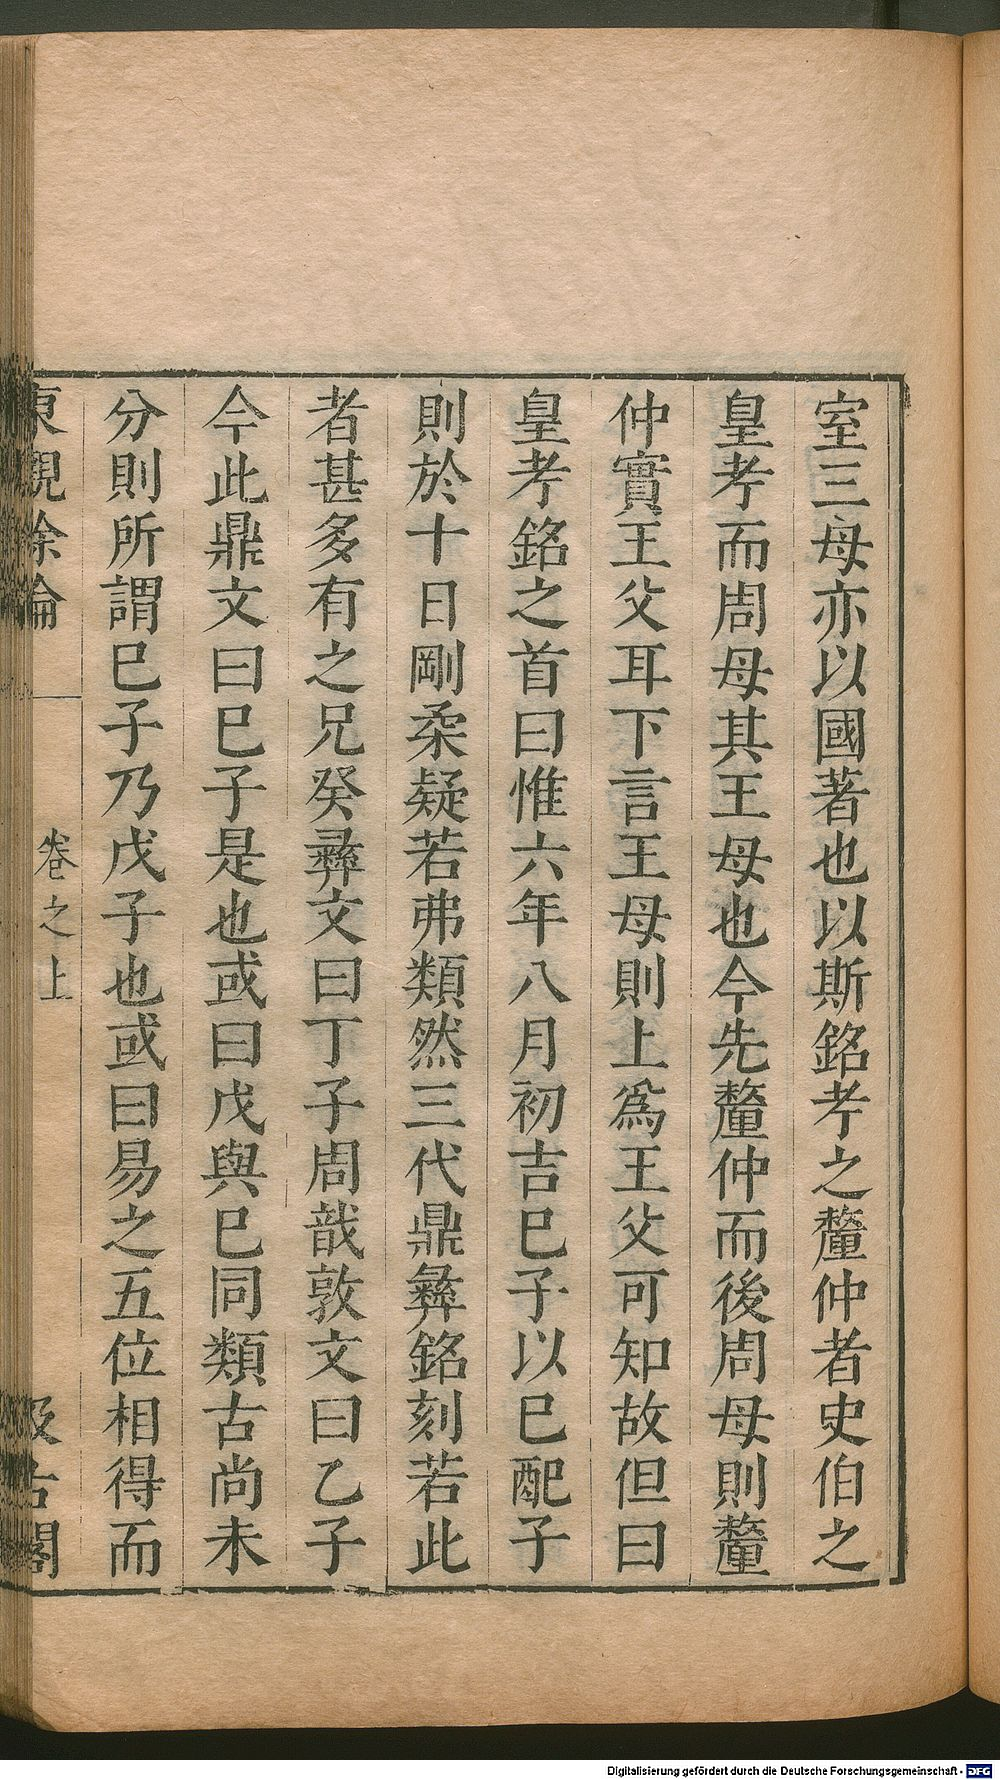 室三母亦以國著也以斯銘考之釐仲者史伯之
皇考而周母其王母也今先釐仲而後周母則釐
仲實王父耳下言王母則上爲王父可知故但曰
皇考銘之首曰惟六年八月初吉巳子以巳配子
則於十日剛柔疑若弗類然三代鼎彝銘刻若此
者甚多有之兄癸彝文曰丁子周敢敦文曰乙子
今此鼎文曰巳子是也或曰戊與巳同類古尚未
分則所謂巳子乃戊子也或曰易之五位相得而
東觀餘論 卷之上 汲古閣
Digitalisierung gefördert durch die Deutsche Forschungsgemeinschaft - DFG